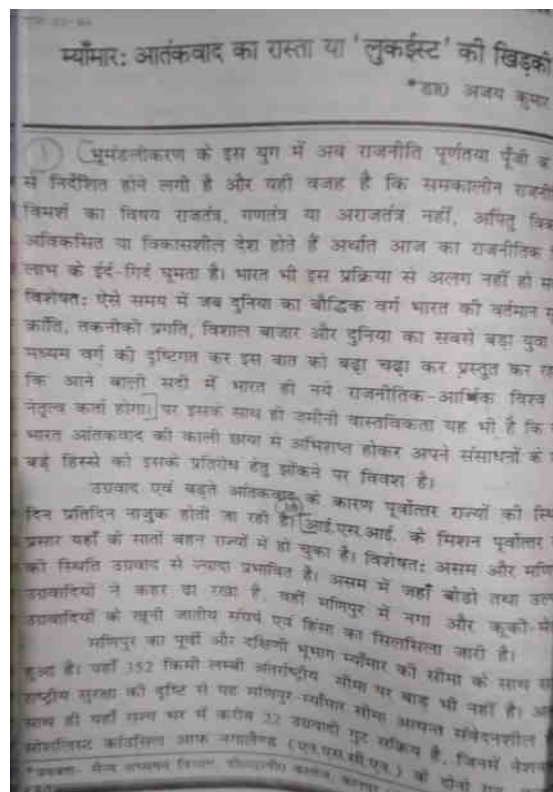 म्याँमार: आतंकवाद का रास्ता या 'लुकईस्ट' की खिड़की
*डा0 अजय कुमार
भूमंडलीकरण के इस युग में अब राजनीति पूर्णतया पूँजी
से निर्देशित होने लगी है और यही वजह है कि समकालीन
विमर्श का विषय राजतंत्र, गणतंत्र या अराजतंत्र नहीं, अपितु
अविकसित या विकासशील देश होते हैं अर्थात आज का राजनीतिक
लाभ के ईर्द-गिर्द घूमता है। भारत भी इस प्रक्रिया से अलग नहीं हो
विशेषत: ऐसे समय में जब दुनिया का बौद्धिक वर्ग भारत की वर्तमान
क्रांति, तकनीकी प्रगति, विशाल बाजार और दुनिया का सबसे बड़ा युवा
मध्यम वर्ग को दृष्टिगत कर इस बात को बढ़ा चढ़ा कर प्रस्तुत कर
कि आने वाली सदी में भारत ही नये राजनीतिक-आर्थिक विश्व
नेतृत्व कर्ता होगा। पर इसके साथ ही जमीनी वास्तविकता यह भी है कि
भारत आंतकवाद की काली छाया में अभिशप्त होकर अपने संसाधनों के
बड़े हिस्से को इसके प्रतिरोध हेतु झोंकने पर विवश है।
उग्रवाद एवं बढ़ते आंतकवाद के कारण पूर्वोत्तर राज्यों की
दिन प्रतिदिन नाजुक होती जा रही है। आई.एस.आई. के मिशन पूर्वोत्तर
प्रसार यहाँ के सातों बहन राज्यों में हो चुका है। विशेषत: असम और
की स्थिति उग्रवाद से ज्यादा प्रभावित है। असम में जहाँ बोडो तथा
उग्रवादियों ने कहर ढा रखा है, वहीं मणिपुर में नगा और कूकी
उग्रवादियों के खूनी जातीय संघर्ष एवं हिंसा का सिलसिला जारी है।
मणिपुर का पूर्वी और दक्षिणी भूभाग म्याँमार की सीमा के साथ
हुआ है। यहाँ 352 किमी लम्बी अंतर्राष्ट्रीय सीमा पर बाड़ भी नहीं है।
राष्ट्रीय सुरक्षा की दृष्टि से यह मणिपुर-म्याँमार सीमा अत्यन्त संवेदनशील
साथ ही यहाँ राज्य भर में करीब 22 उग्रवादी गुट सक्रिय है, जिनमें
सोशलिस्ट काउंसिल आफ नगालैण्ड (एन.एस.सी.एन.) के दोनों गुट